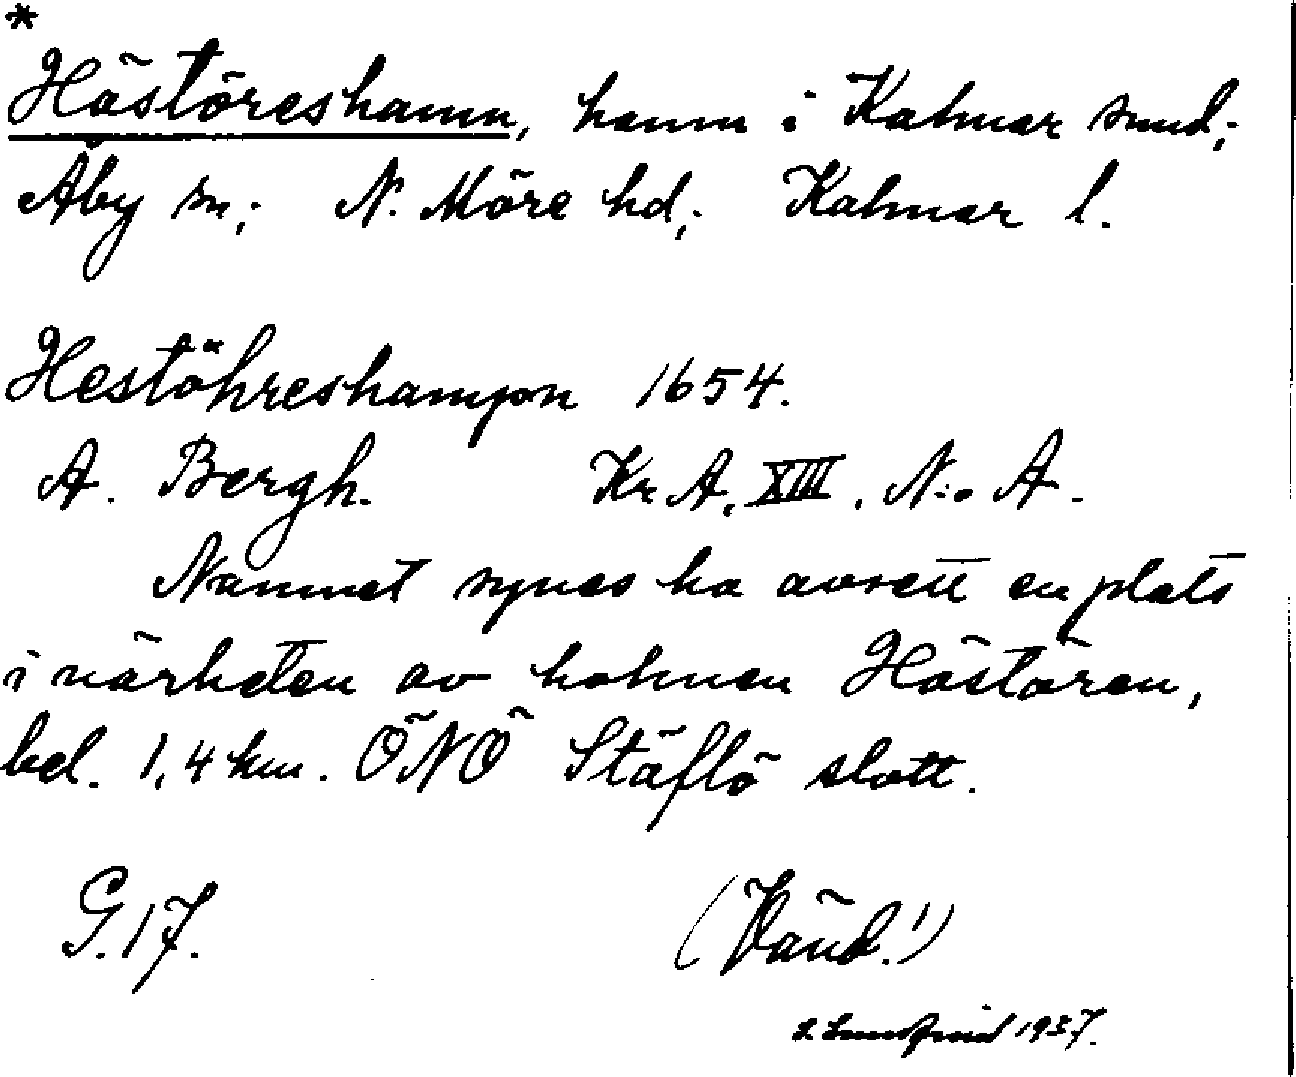 *
Hästöreshamn, hamn i Kalmar sund;
Åby sn; N. Möre hd; Kalmar l.
Hestöhreshampn 1654.
A. Bergh. Kr. A. XIII. N:o A.
Namnet synes ha avsett en plats
i närheten av holmen Hästören,
bel. 1,4 km. ÖNÖ Stäflö slott.
G. 17. (Vänd!)
1937.